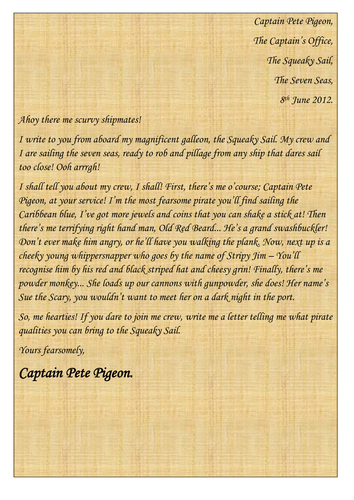 Captain Pete Pigeon,
The Captain's Office,
The Squeaky Sail,
The Seven Seas,
8th June 2012.
Ahoy there me scurvy shipmates!
I write to you from aboard my magnificent galleon, the Squeaky Sail. My crew and
I are sailing the seven seas, ready to rob and pillage from any ship that dares sail
too close! Ooh arrrgh!
I shall tell you about my crew, I shall! First, there's me o'course; Captain Pete
Pigeon, at your service! I'm the most fearsome pirate you'll find sailing the
Caribbean blue, I've got more jewels and coins that you can shake a stick at! Then
there's me terrifying right hand man, Old Red Beard... He's a grand swashbuckler!
Don't ever make him angry, or he'll have you walking the plank. Now, next up is a
cheeky young whippersnapper who goes by the name of Stripy Jim – You'll
recognise him by his red and black striped hat and cheesy grin! Finally, there's me
powder monkey... She loads up our cannons with gunpowder, she does! Her name's
Sue the Scary, you wouldn't want to meet her on a dark night in the port.
So, me hearties! If you dare to join me crew, write me a letter telling me what pirate
qualities you can bring to the Squeaky Sail.
Yours fearsomely,
Captain Pete Pigeon.